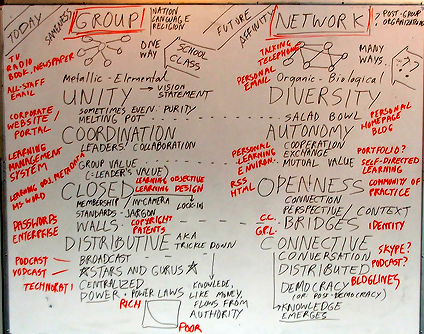 TODAY
SAMENESS
GROUP
NATION
LANGUAGE
RELIGION
FUTURE
AFFINITY
NETWORK?
? POST-GROUP
ORGANIZATIONS
ONE
WAY
SCHOOL
CLASS
MANY
WAYS..
TV
RADIO
BOOK..NEWSPAPER
ALL-STAFF
EMAIL
TALKING
TELEPHONE
PERSONAL
EMAIL
Metallic - Elemental
VISION
STATEMENT
Organic - Biological
UNITY
DIVERSITY
CORPORATE
WEBSITE/
PORTAL
SOMETIMES EVEN: PURITY
MELTING POT
SALAD BOWL
PERSONAL
HOMEPAGE
BLOG
COORDINATION
LEADERS' COLLABORATION
AUTONOMY
COOPERATION
EXCHANGE
MUTUAL VALUE
LEARNING
MANAGEMENT
SYSTEM
GROUP VALUE
(=LEADER'S VALUE)
PERSONAL
LEARNING
ENVIRON..
PORTFOLIO?
SELF-DIRECTED
LEARNING
LEARNING OBJ. METADATA
MS-WORD
CLOSED
LEARNING OBJECTIVE
LEARNING DESIGN
RSS
HTML
OPEN-NESS
COMMUNITY OF
PRACTICE
MEMBERSHIP / IN-CAMERA
STANDARDS - JARGON
LOCK-IN
CONNECTION
PERSPECTIVE / CONTEXT
PASSWORDS
ENTERPRISE
WALLS
COPYRIGHT
PATENTS
CC.
GPL.
BRIDGES
IDENTITY
DISTRIBUTIVE
AKA
TRICKLE DOWN
CONNECTIVE
PODCAST
VODCAST
BROADCAST
STARS AND GURUS
CONVERSATION
DISTRIBUTED
SKYPE?
PODCAST?
TECHNORATI
CENTRALIZED
POWER • POWER LAWS
KNOWLEDE,
LIKE MONEY,
FLOWS FROM
AUTHORITY
DEMOCRACY
(OR POST-DEMOCRACY)
BLOGLINES
KNOWLEDGE
EMERGES
RICH
POOR